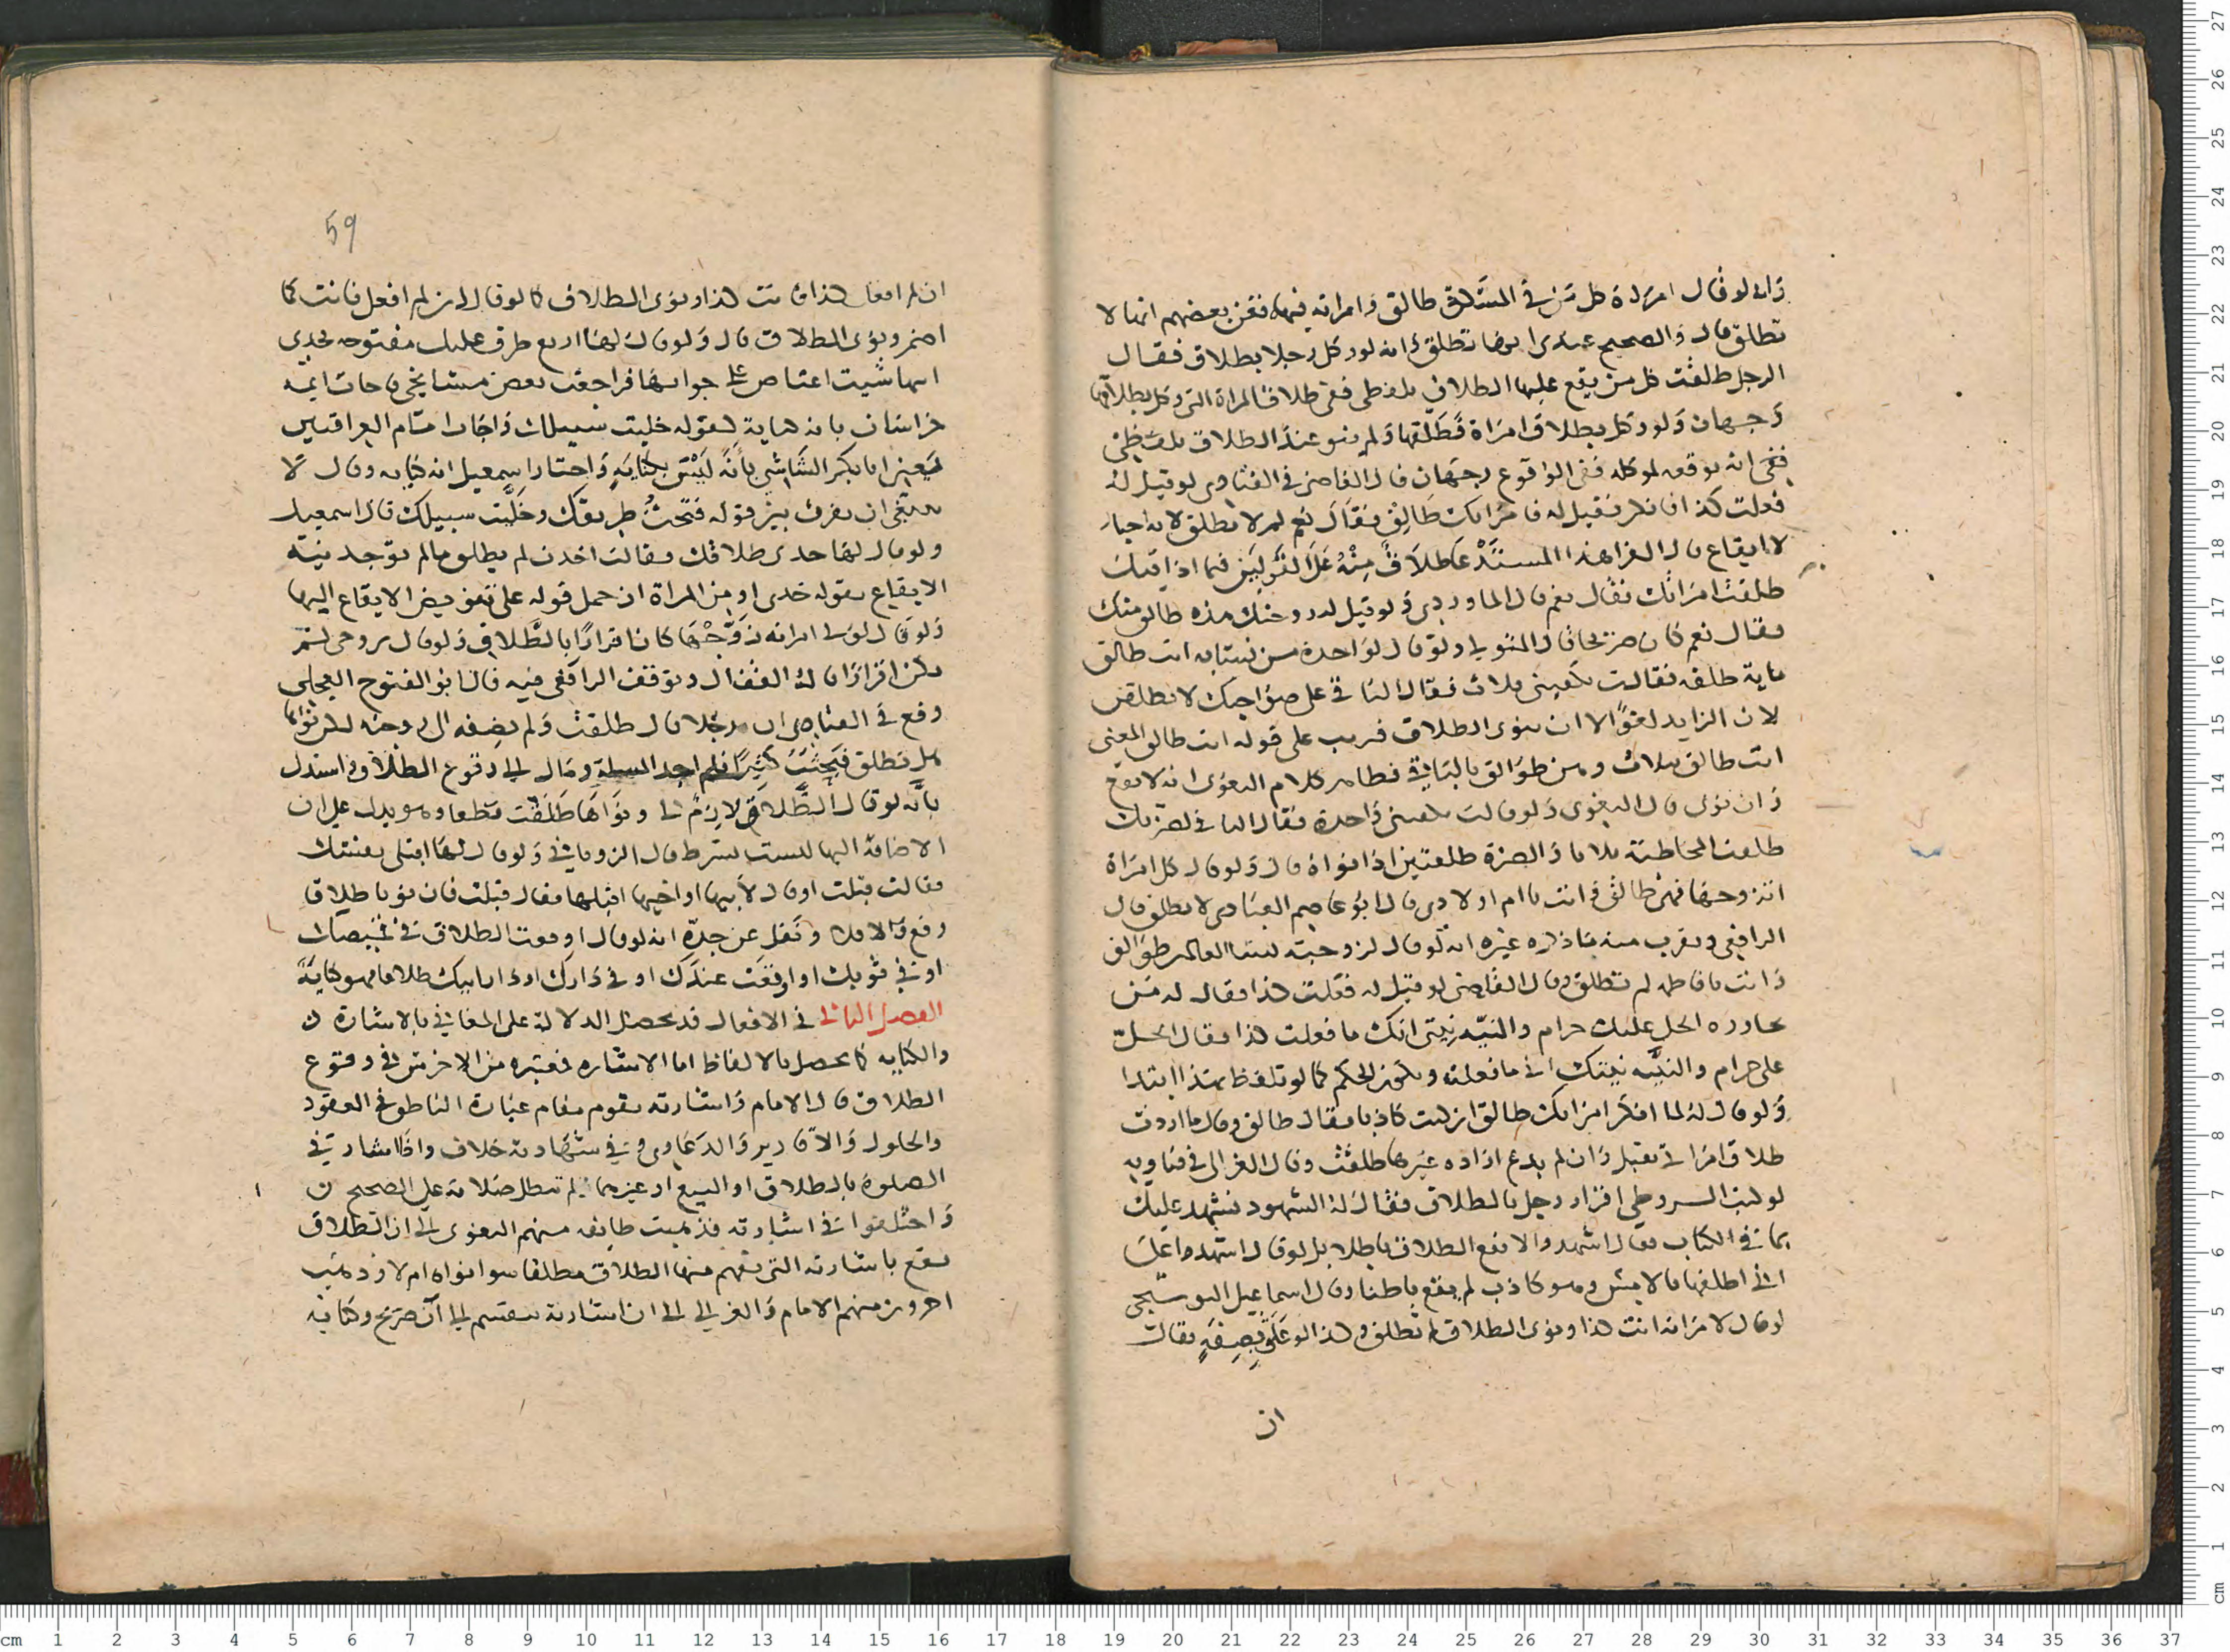 وانه لو قال امراة كل من في المشرق طالق وامراته فيها ففي بعضهم انها لا
تطلق قال والصحيح عندي انها تطلق وانه لو وكل رجلا بطلاق فقال
الرجل طلقت كل من يقع عليها الطلاق بلفظي ففي طلاق المراة التي وكل بطلاقها
وجهان ولو وكل بطلاق امراة فطلقها ولم ينو عند الطلاق بلفظي
ففي انه يوقعه لموكله ففي الوقوع وجهان قال القاضي في الفتاوى لو قيل له
فعلت كذا فانكر فقيل له فامراتك طالق فقال نعم لم تطلق لانه اخبار
لا ايقاع قال الغزا هذا المستند على طلاق منه على القولين فيما اذا قيل
طلقت امراتك فقال نعم قال الماوردي ولو قيل له زوجتك هذه طالق منك
فقال نعم كان صريحا قال المتولي ولو قال لواحدة من نسائه انت طالق
ماية طلقة فقالت تكفيني ثلاث فقال الباقي على صواحبك لا تطلقن
لان الزايد لغوا الا ان ينوى الطلاق قريب على قوله انت طالق المعنى
انت طالق ثلاث وهن طوالق بالباقي فظاهر كلام البغوى انه لا يقع
وان نوى قال البغوى ولو قالت يكفيني واحدة فقال الباقي لضرتك
طلقت المخاطبة ثلاثا والضرة طلقتين اذا نواه قال ولو قال كل امراة
اتزوجها فهي طالق وانت يا ام اولادي قال ابو عاصم العبادى لا تطلق قال
الرافعي ويقرب منه ما ذكره غيره انه لو قال لزوجته نساء العالمين طوالق
وانت يا فاطمة لم تطلق وقال القاضي لو قيل له فعلت كذا فقال له من
يحاوره الحل عليك حرام والنية نيتي انك ما فعلت كذا فقال الحل
علي حرام والنية نيتك اني ما فعلته ويكون الحكم كما لو تلفظ بهذا ابتدا
ولو قال له لما انكر امراتك طالق ان كنت كاذبا فقال طالق وقال ما اردت
طلاق امراتي يقبل وان لم يدع ارادة غيرها طلقت وقال الغزالي في فتاويه
لو كتب الشروطي اقرار رجل بالطلاق فقال له الشهود نشهد عليك
بما في الكتاب فقال اشهدوا لا يقع الطلاق باطنا بل لو قال اشهدوا علي
اني اطلقها بالامس وهو كاذب لم يقع باطنا وقال اسماعيل البوشنجي
لو قال لامراته انت كذا ونوى الطلاق لم تطلق وكذا لو علق بصفة فقال
ان
59
ان لم افعل كذا فانت كذا ونوى الطلاق كما لو قال ان لم افعل فانت كما
اضمر ونوى الطلاق قال ولو قال لها اربع طرق عليك مفتوحة فخذي
ايها شيت اعتاص علي جوابها فراجعت بعض مشايخي فاجاب ايمة
خراسان بانه كناية لقوله خليت سبيلك واجاب امام العراقيين
يعني ابا بكر الشاشي بانه ليس بكناية واختار اسمعيل انه كناية وقال لا
ينبغي ان يفرق بين قوله فتحت طريقك وخليت سبيلك قال اسمعيل
ولو قال لها خدي طلاقك فقالت اخدت لم يطلق ما لم توجد نية
الايقاع بقوله خدي او من المراة ان حمل قوله على تفويض الايقاع اليها
ولو قال لولي امراته زوجها كان اقرارا بالطلاق ولو قال تزوجي لم
يكن اقرارا قاله القفال وتوقف الرافعي فيه قال ابو الفتوح العجلي
وقع في الفتاوى ان رجلا قال طلقت ولم يضفه الى زوجته لكن نواها
هل تطلق فبحثت كثيرا فلم اجد المسلة ومال لي وقوع الطلاق واستدل
بانه لو قال الطلاق لازم لي ونواها طلقت قطعا وهو يدل على ان
الاضافة اليها ليست بشرط قال الروياني ولو قال لها اقبلي بعتك
فقالت قبلت او قال لابيها او اخيها اقبلها فقال قبلت فان نويا طلاقا
وقع والا فلا ونقل عن جده انه لو قال اوقعت الطلاق في قميصك
او في ثوبك او اوقعت عندك او في دارك او دار ابيك طلاقا فهو كناية
الفصل الثاني في الافعال قد يحصل الدلالة على المعاني بالاشارة
والكتابة كما يحصل بالالفاظ اما الاشارة فمعتبرة من الاخرس في وقوع
الطلاق قال الامام واشارته تقوم مقام عبارة الناطق في العقود
والحلول والاقارير والدعاوي وفي شهادته خلاف واذا اشار في
الصلوة بالطلاق او البيع او غيرهما لم تبطل صلاته على الصحيح
واختلفوا في اشارته فذهبت طايفة منهم البغوى الى ان الطلاق
يقع باشارته التي يفهم منها الطلاق مطلقا سوا نواه ام لا وذهب
اخرون منهم الامام والغزالي الى ان اشارته تنقسم الى صريح وكناية